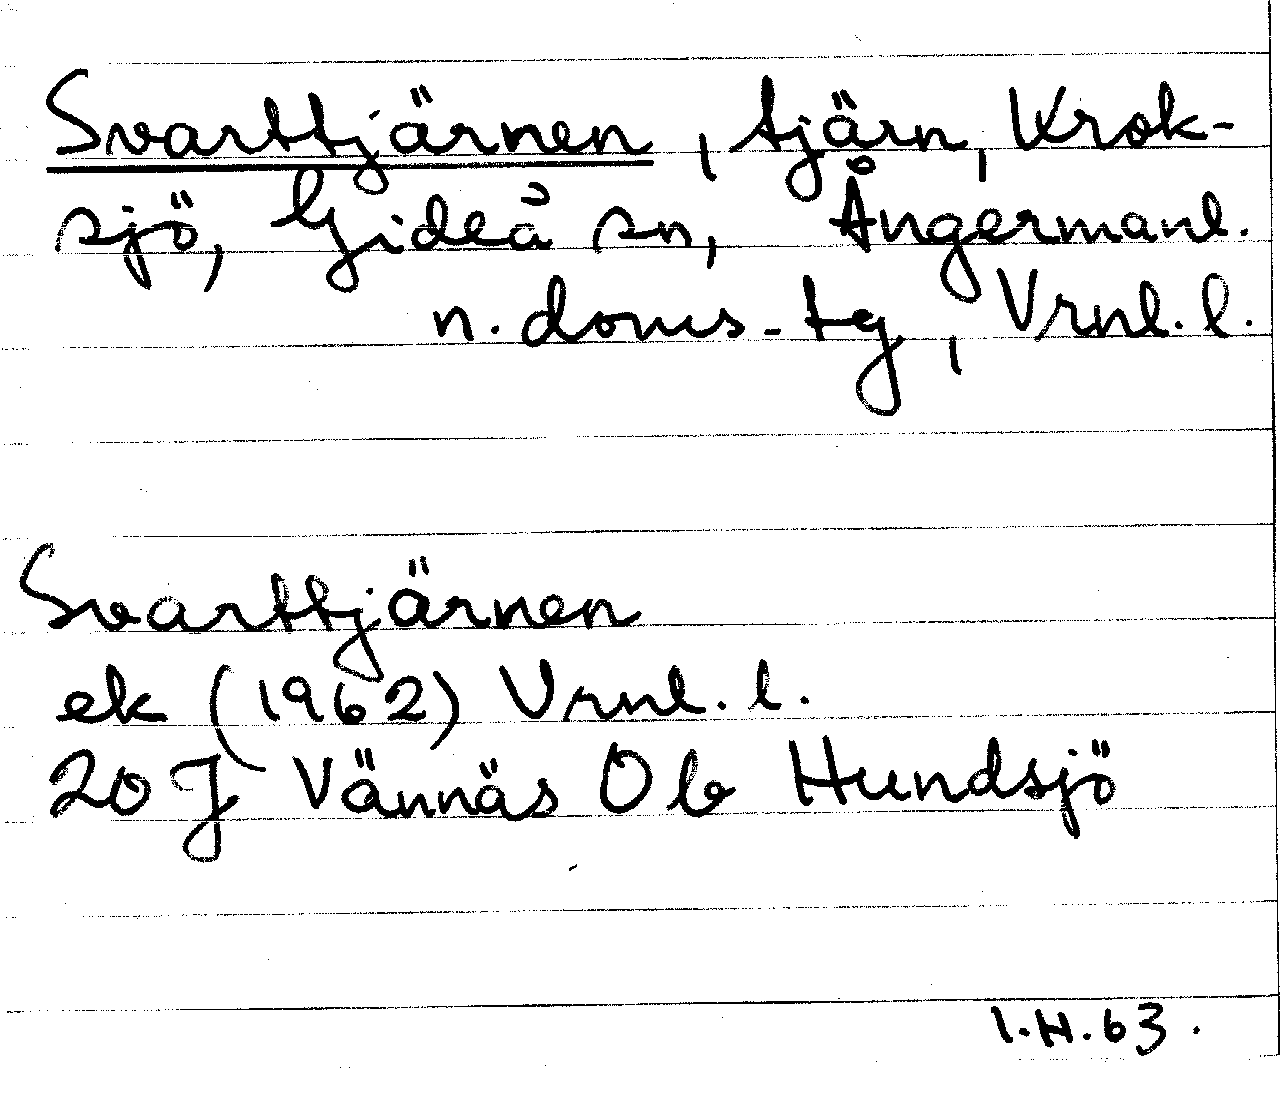 Svarttjärnen, tjärn, Krok-
sjö, Gideå sn, Ångermanl.
n. doms-tg, Vrnl. l.
Svarttjärnen
ek (1962) Vrnl. l.
20 J Vännäs Ob Hundsjö
I.H.63.